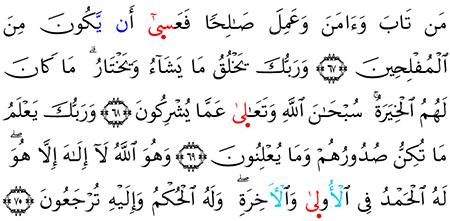 مَن تَابَ وَءَامَنَ وَعَمِلَ صَـٰلِحًا فَعَسِىٰٓ أَن يَّكُونَ مِنَ
ٱلْمُفْلِحِينَ ﴿٦٧﴾ وَرَبُّكَ يَخْلُقُ مَا يَشَآءُ وَيَخْتَارُ ۗ مَا كَانَ
لَهُمُ ٱلْخِيَرَةُ ۚ سُبْحَـٰنَ ٱللَّهِ وَتَعَـٰلِىٰ عَمَّا يُشْرِكُونَ ﴿٦٨﴾ وَرَبُّكَ يَعْلَمُ
مَا تُكِنُّ صُدُورُهُمْ وَمَا يُعْلِنُونَ ﴿٦٩﴾ وَهُوَ ٱللَّهُ لَآ إِلَـٰهَ إِلَّا هُوَ ۖ
لَهُ ٱلْحَمْدُ فِى ٱلْأُولِىٰ وَٱلْأَخِرَةِ ۖ وَلَهُ ٱلْحُكْمُ وَإِلَيْهِ تُرْجَعُونَ ﴿٧٠﴾